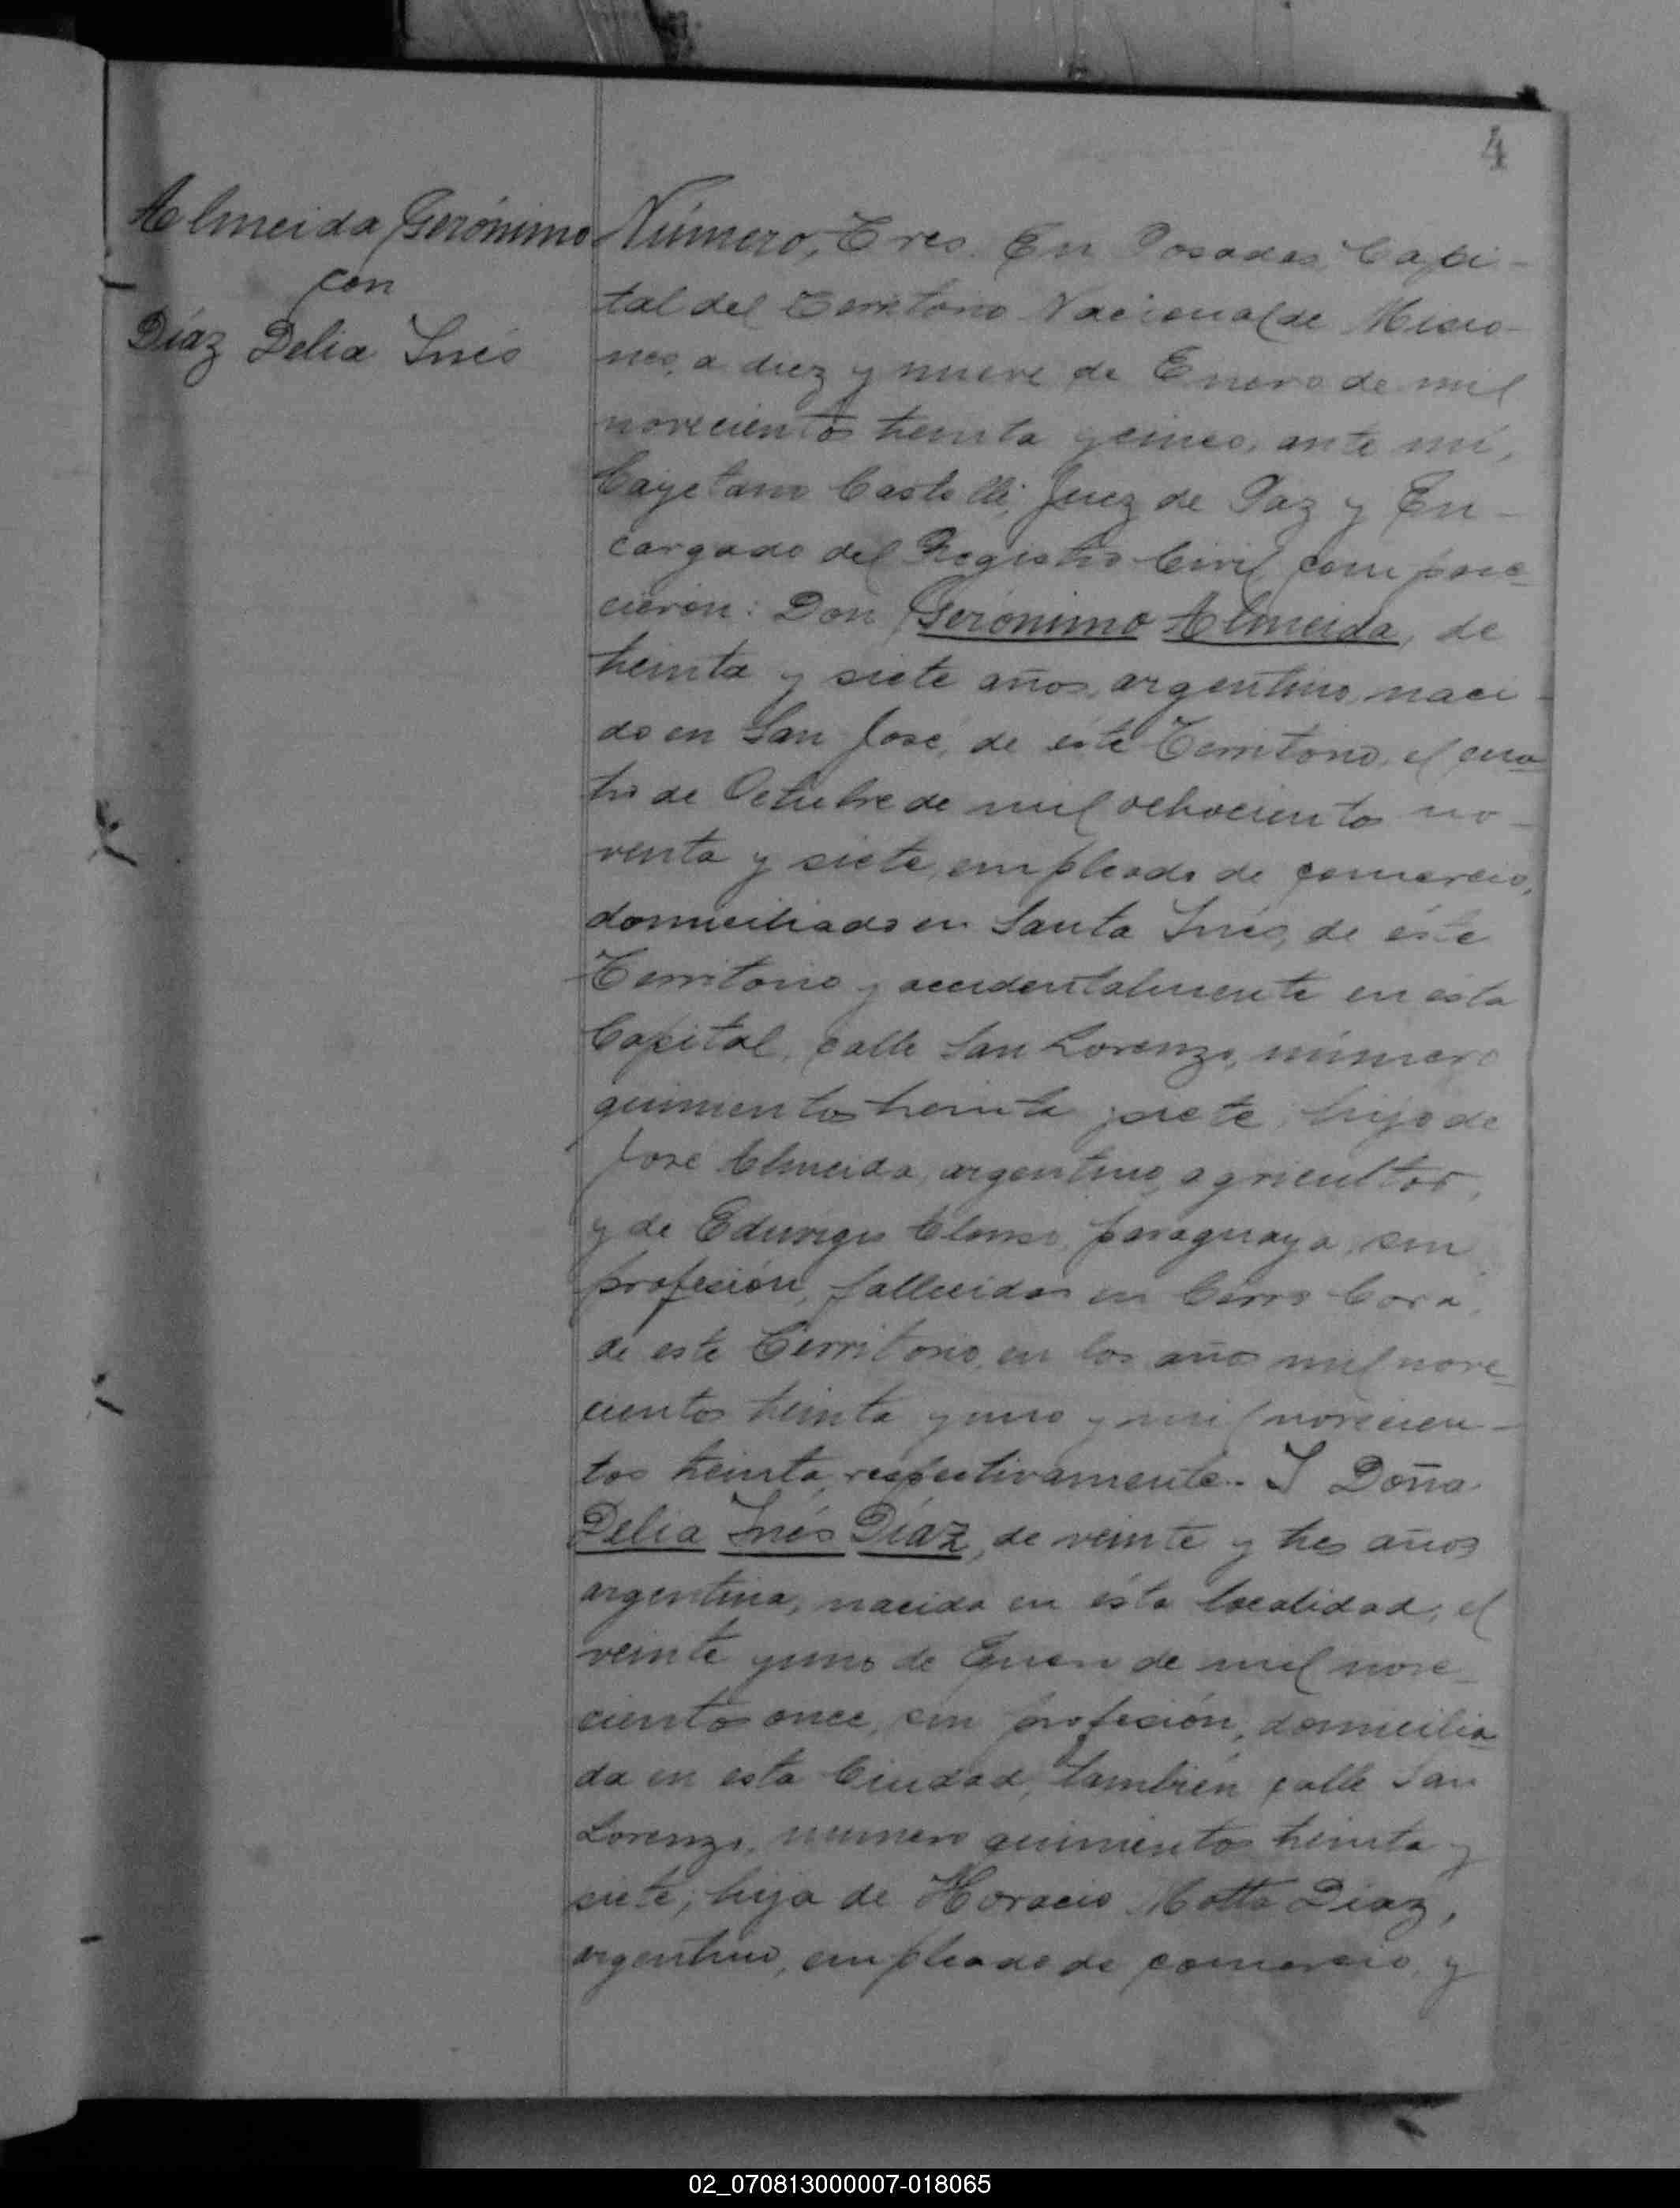 4
Almeida Gerónimo
con
Díaz Delia Inés
Número, Tres. En Posadas, Capi-
tal del Territorio Nacional de Misio-
nes, a diez y nueve de Enero de mil
novecientos treinta y cinco, ante mí,
Cayetano Castelli, Juez de Paz y En-
cargado del Registro Civil, compare-
cieron: Don Gerónimo Almeida, de
treinta y siete años, argentino, naci-
do en San José, de éste Territorio, el cua-
tro de Octubre de mil ochocientos no-
venta y siete, empleado de comercio,
domiciliado en Santa Inés, de éste
Territorio y accidentalmente en esta
Capital, calle San Lorenzo, número
quinientos treinta y siete, hijo de
José Almeida, argentino, agricultor,
y de Eduvigis, paraguaya, sin
profesión, fallecidos en Cerro Corá,
de este Territorio, en los años mil nove-
cientos treinta y uno y mil novecien-
tos treinta, respectivamente.- Y Doña
Delia Inés Díaz, de veinte y tres años
argentina, nacida en ésta localidad, el
veinte y uno de Enero de mil nove-
cientos once, sin profesión, domicilia-
da en esta Ciudad, también calle San
Lorenzo, numero quinientos treinta y
siete, hija de Horacio Motta Díaz,
argentino, empleado de comercio, y
02_070813000007-018065